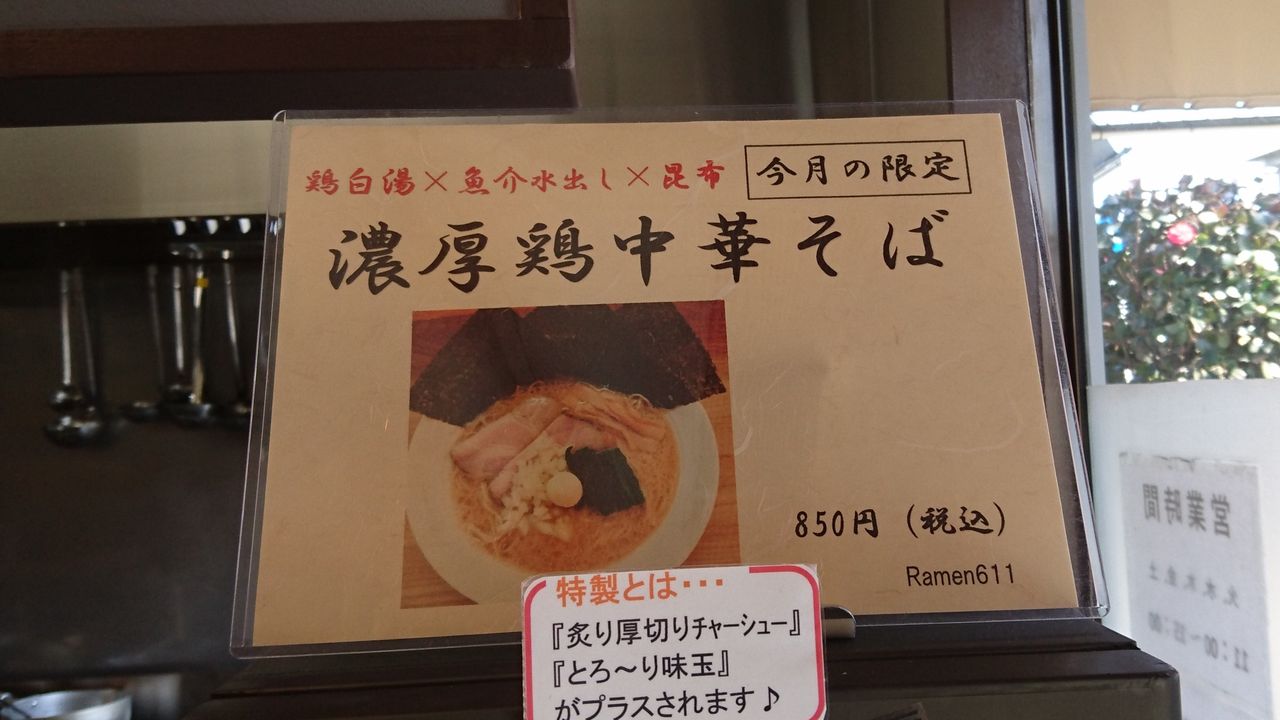 鶏白湯×魚介水出し×昆布
今月の限定
濃厚鶏中華そば
850円（税込）
Ramen611
特製とは・・・
『炙り厚切りチャーシュー』
『とろ～り味玉』
がプラスされます♪
営業時間
火木金土
11:00～15:00